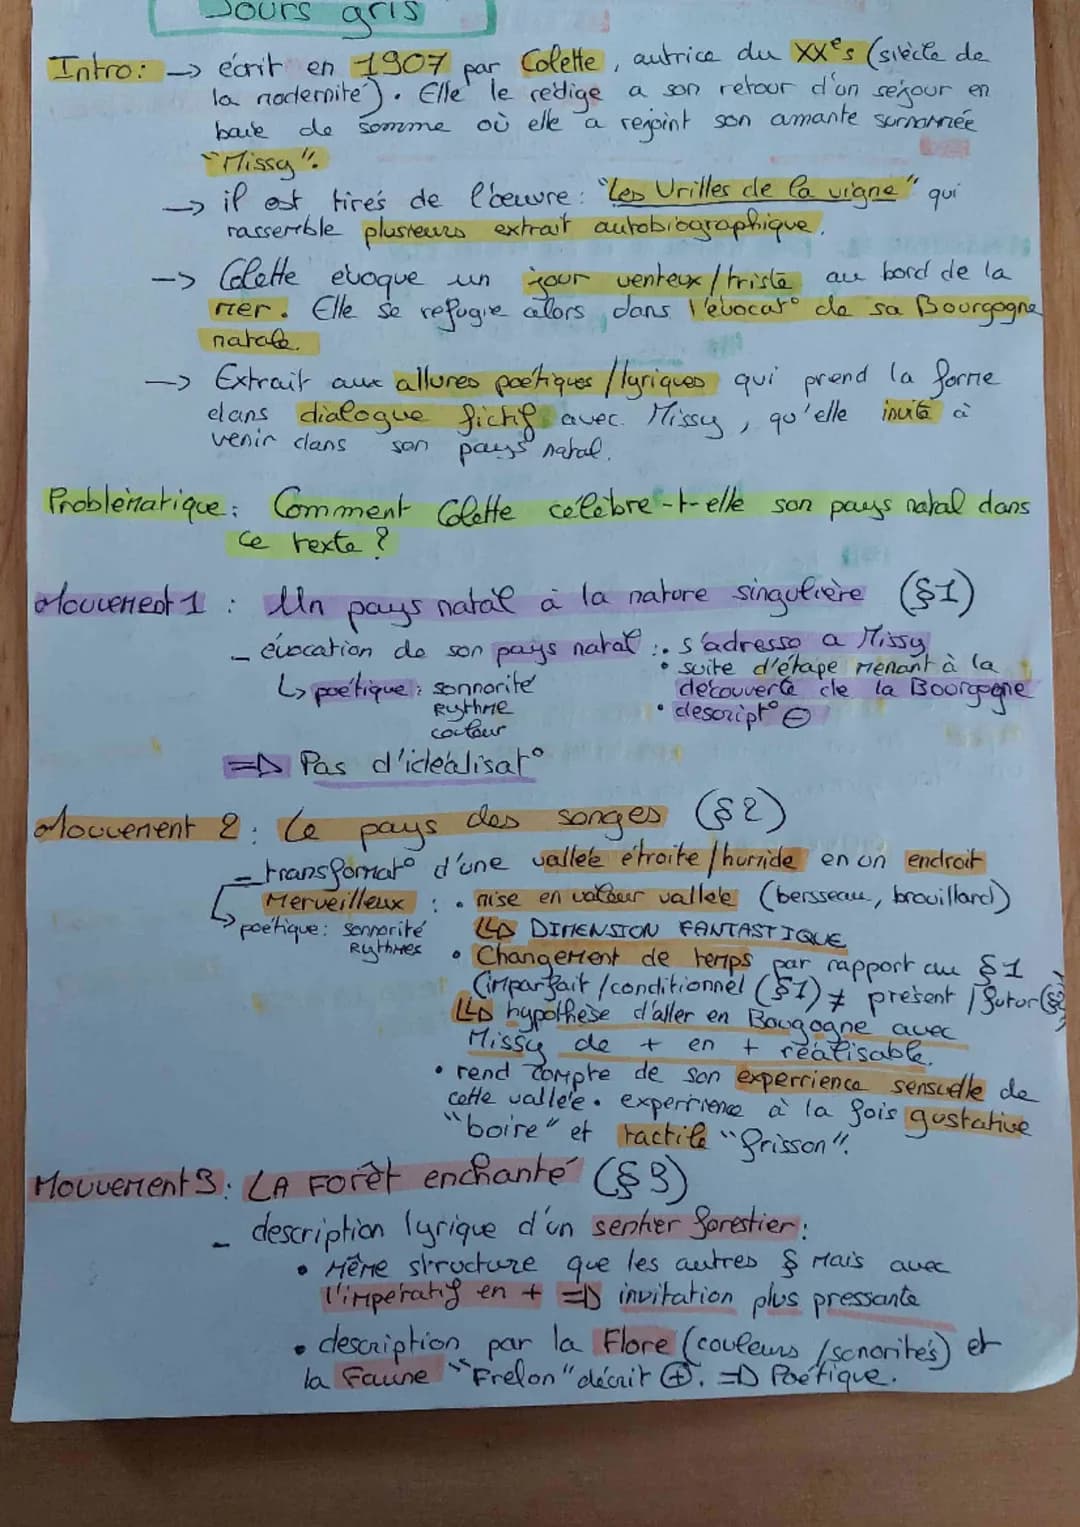 Jours gris
Intro: → écrit en 1907 par Colette, autrice du XXe s (siècle de
la modernité). Elle le rédige a son retour d'un séjour en
baie de somme où elle a rejoint son amante surnommée
"Missy".
→ il est tirés de l'œuvre: "Les Vrilles de la vigne" qui
rassemble plusieurs extrait autobiographique.
→ Colette évoque un jour venteux/triste au bord de la
mer. Elle se refugie alors dans l'évocat° de sa Bourgogne
natale.
→ Extrait aux allures poétiques/lyriques qui prend la forme
dans dialogue fictif avec Missy, qu'elle invite à
venir dans son pays natal.
Problématique: Comment Colette célèbre-t-elle son pays natal dans
ce texte?
Mouvement 1: Un pays natal à la nature singulière (§1)
- évocation de son pays natal: • s'adresse a Missy
• suite d'étape menant à la
↳ poétique: sonnorité découverte de la Bourgogne
Rythme • descript° ⊖
couleur
=> Pas d'idéalisat°
Mouvement 2: Le pays des songes (§2)
- transformat° d'une vallée étroite/humide en un endroit
Merveilleux: • mise en valeur vallée (bersseau, brouillard)
↳ poétique: sonnorité ↳ DIMENSION FANTASTIQUE
Rythmes • Changement de temps par rapport au §1
(imparfait/conditionnel (§1) ≠ présent/futur (§2)
↳ hypothèse d'aller en Bougogne avec
Missy de + en + réalisable.
• rend compte de son experrience sensuelle de
cette vallée. experrience à la fois gustative
"boire" et tactile "frisson".
Mouvement 3: LA Forêt enchanté (§3)
- description lyrique d'un sentier forestier:
• Même structure que les autres § Mais avec
l'impératif en + => invitation plus pressante
• description par la Flore (couleurs/sonorités) et
la Faune "Frelon" décrit ⊕. => Poétique.